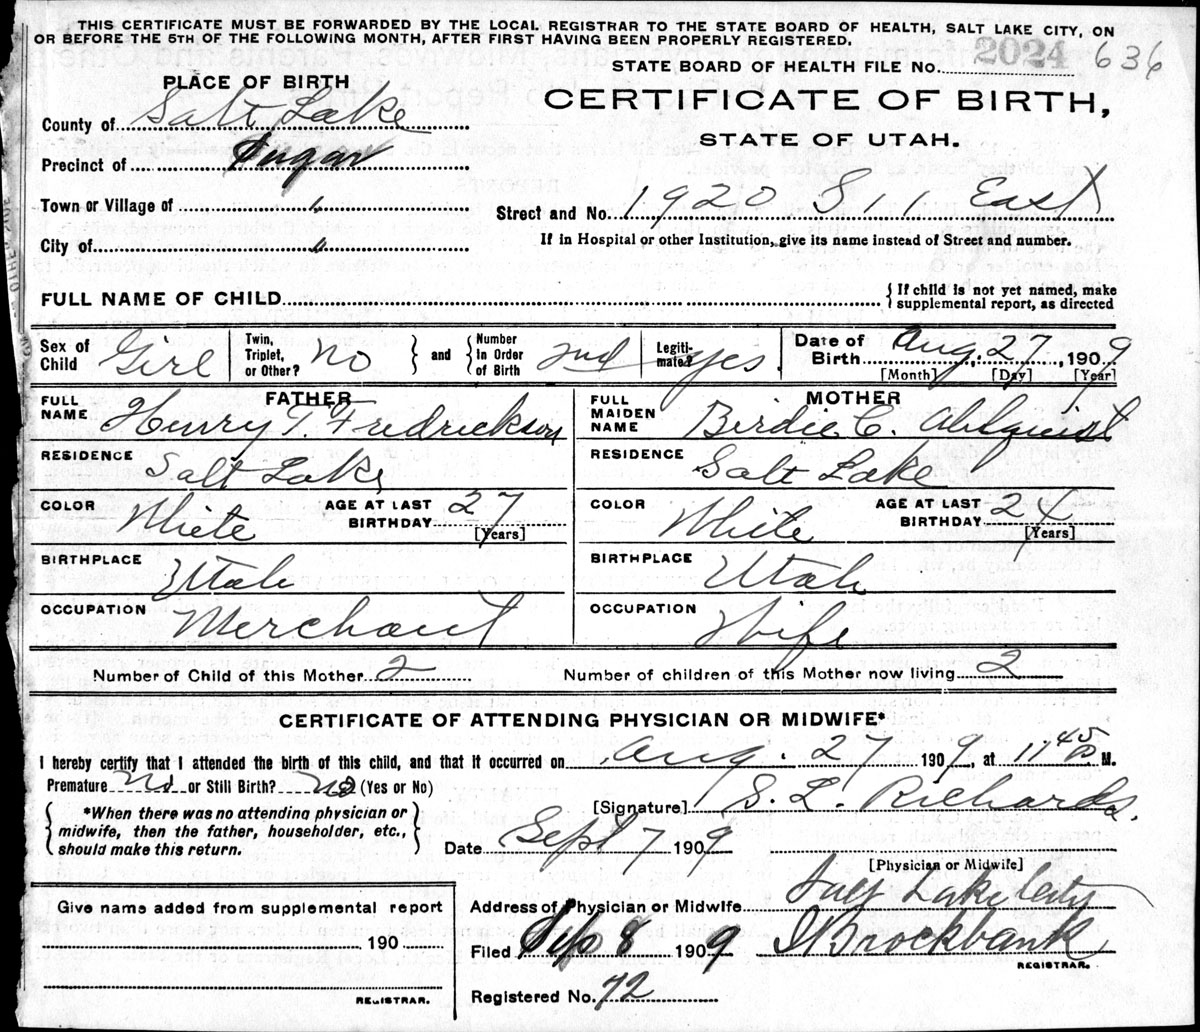 THIS CERTIFICATE MUST BE FORWARDED BY THE LOCAL REGISTRAR TO THE STATE BOARD OF HEALTH, SALT LAKE CITY, ON
OR BEFORE THE 5TH OF THE FOLLOWING MONTH, AFTER FIRST HAVING BEEN PROPERLY REGISTERED.
STATE BOARD OF HEALTH FILE No. 2024 636
PLACE OF BIRTH
CERTIFICATE OF BIRTH,
STATE OF UTAH.
County of Salt Lake
Precinct of Sugar
Town or Village of "
Street and No. 1920 S 11 East
City of "
If in Hospital or other Institution, give its name instead of Street and number.
FULL NAME OF CHILD
{ If child is not yet named, make supplemental report, as directed
Sex of Child Girl Twin, Triplet, or Other? no } and { Number In Order of Birth 2nd Legiti-mate? yes Date of Birth Aug. 27, 1909
[Month] [Day] [Year]
FATHER
FULL NAME Henry T. Fredrickson
RESIDENCE Salt Lake
COLOR White AGE AT LAST BIRTHDAY 27 [Years]
BIRTHPLACE Utah
OCCUPATION Merchant
MOTHER
FULL MAIDEN NAME Birdie C. Ahlquist
RESIDENCE Salt Lake
COLOR White AGE AT LAST BIRTHDAY 24 [Years]
BIRTHPLACE Utah
OCCUPATION Wife
Number of Child of this Mother 2 Number of children of this Mother now living 2
CERTIFICATE OF ATTENDING PHYSICIAN OR MIDWIFE*
I hereby certify that I attended the birth of this child, and that it occurred on Aug. 27 1909, at 11 45 P M.
Premature No or Still Birth? No (Yes or No)
{ *When there was no attending physician or midwife, then the father, householder, etc., should make this return. }
[Signature] S. L. Richards.
Date Sept 7 1909
[Physician or Midwife]
Address of Physician or Midwife Salt Lake City
Filed Sep 8 1909 Brockbank
REGISTRAR.
Registered No. 72
Give name added from supplemental report
190
REGISTRAR.